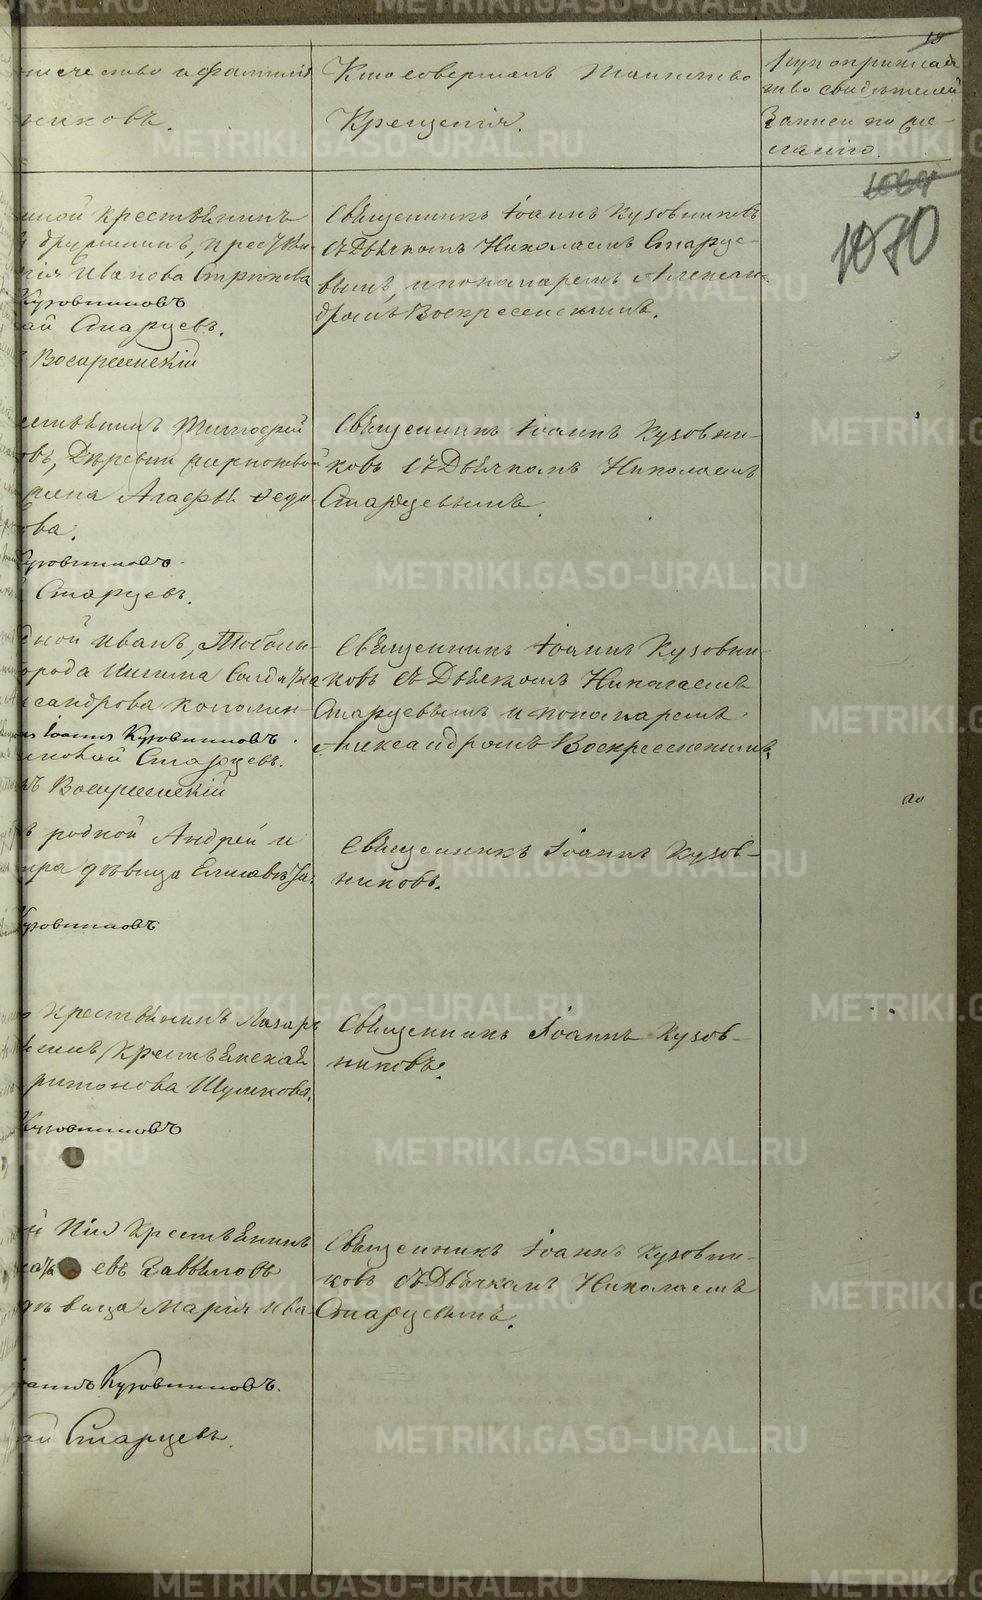 10
отчество и фамилія
никовъ.
Кто совершалъ таинство
Крещенія.
Рукоприклад
ство свидѣтелей
записи по же-
ланію.
1070
крестьянинъ
Ивановa
Кузовниковъ
Старцевъ.
Воскресенскій
Священникъ Іоаннъ Кузовниковъ
съ Дьячкомъ Николаемъ Старце-
вымъ, и пономаремъ Алексан-
дромъ Воскресенскимъ.
Тимофей
овъ, Деревни
жена Агафья Ѳедо-
ова.
Кузовниковъ
Старцевъ.
Священникъ Іоаннъ Кузовни-
ковъ съ Дьячкомъ Николаемъ
Старцевымъ.
дной Иванъ, Тоболь-
города Ишима Солдатка
сандрова
Іоаннъ Кузовниковъ.
иколай Старцевъ.
ръ Воскресенскій
Священникъ Іоаннъ Кузовни-
ковъ съ Дьячкомъ Николаемъ
Старцевымъ и пономаремъ
Александромъ Воскресенскимъ.
родной Андрей и
дѣвица Елисавета.
Кузовниковъ
Священникъ Іоаннъ Кузов-
никовъ.
крестьянинъ Лазарь
крестьянская
ритонова Шуликова.
Кузовниковъ
Священникъ Іоаннъ Кузов-
никовъ.
крестьянинъ
евъ Завьяловъ
дѣвица Марія Ива-
Іоаннъ Кузовниковъ.
ай Старцевъ.
Священникъ Іоаннъ Кузовни-
ковъ съ Дьячкомъ Николаемъ
Старцевымъ.
METRIKI.GASO-URAL.RU